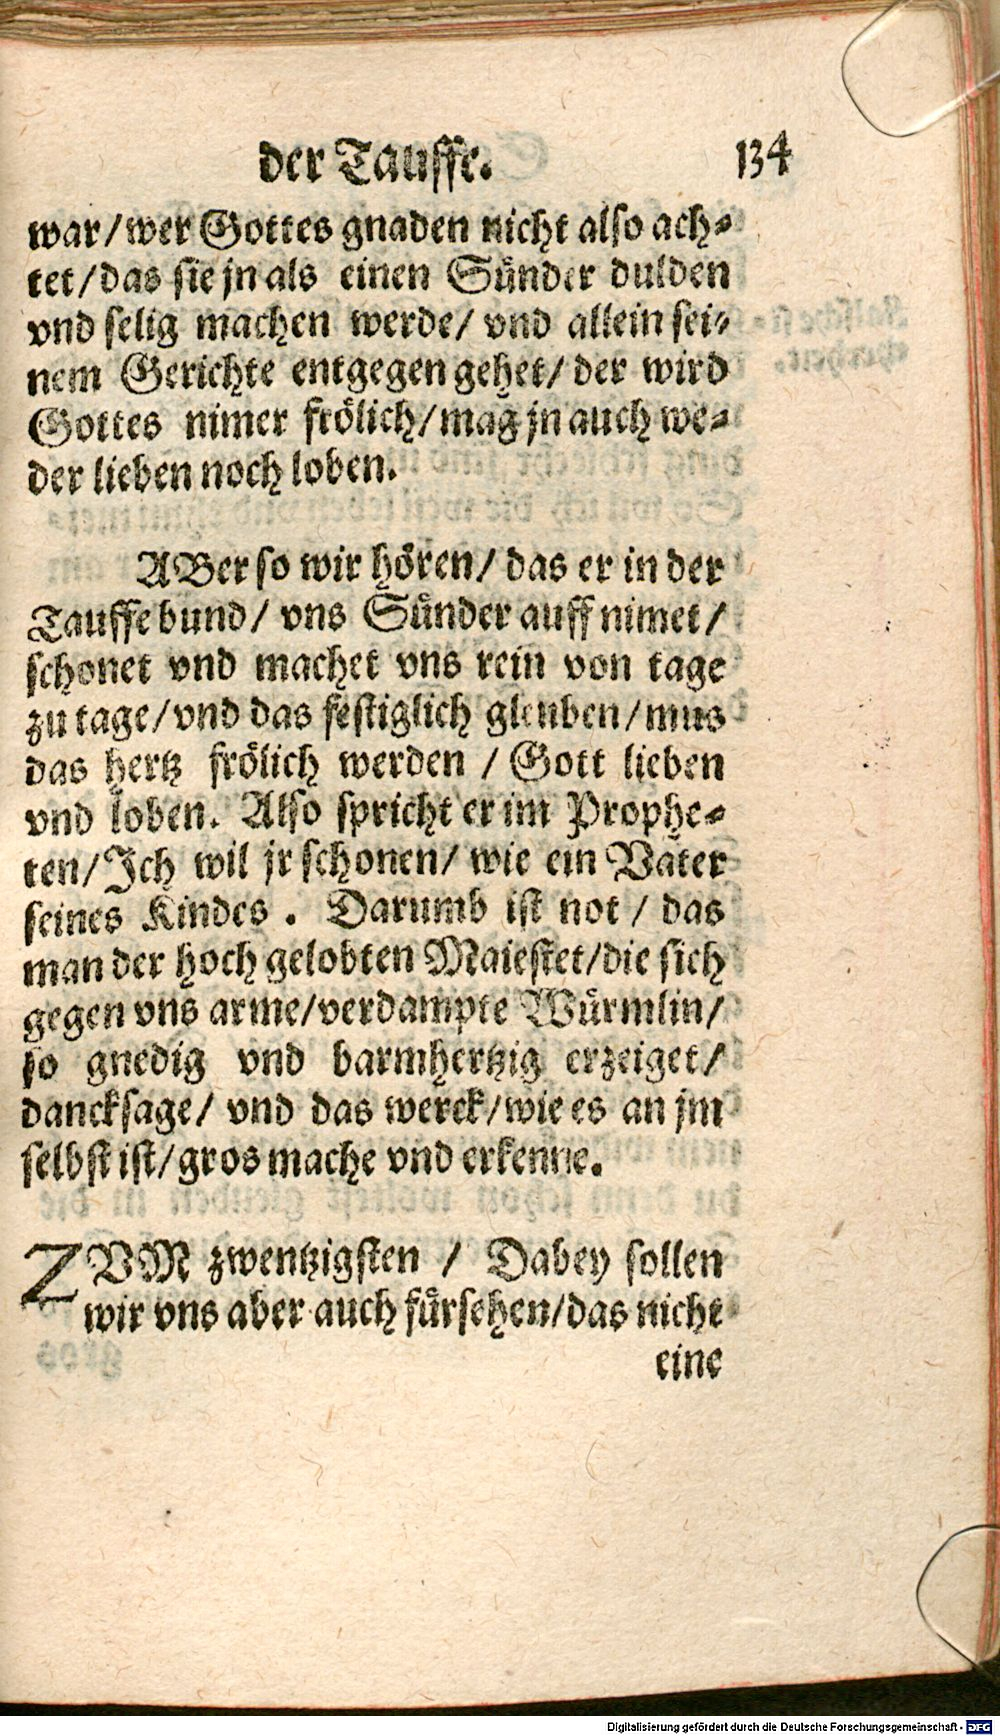 der Tauffe. 134
war/wer Gottes gnaden nicht also ach-
tet/das sie jn als einen Sünder dulden
vnd selig machen werde/ vnd allein sei-
nem Gerichte entgegen gehet/ der wird
Gottes nimer frölich/mag jn auch we-
der lieben noch loben.
ABer so wir hören/ das er in der
Tauffe bund/ vns Sünder auff nimet/
schonet vnd machet vns rein von tage
zu tage/vnd das festiglich gleuben/mus
das hertz frölich werden / Gott lieben
vnd loben. Also spricht er im Prophe-
ten/Ich wil jr schonen/ wie ein Vater
seines Kindes . Darumb ist not / das
man der hoch gelobten Maiestet/die sich
gegen vns arme/verdampte Würmlin/
so gnedig vnd barmhertzig erzeiget/
dancksage/ vnd das werck/wie es an jm
selbst ist/gros mache vnd erkenne.
ZVM zwentzigsten / Dabey sollen
wir vns aber auch fürsehen/das nicht
eine
Digitalisierung gefördert durch die Deutsche Forschungsgemeinschaft - DFG